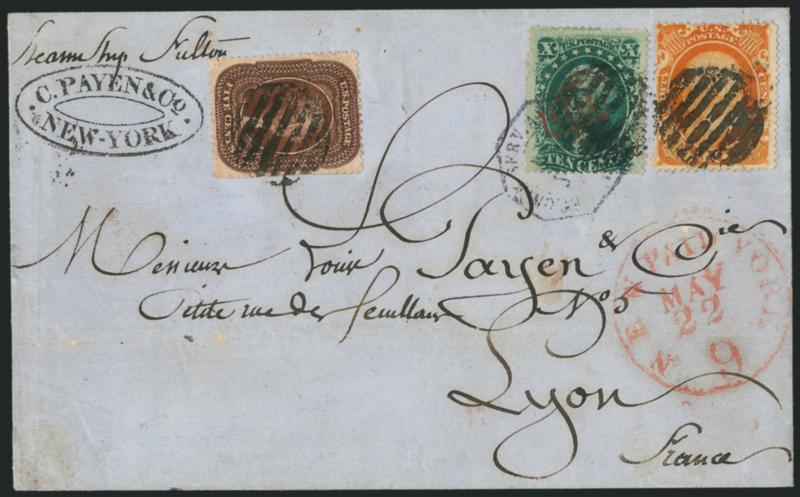 Steam Ship Fulton
C. PAYEN & Co
NEW-YORK
U.S. POSTAGE
FIVE CENTS
X U.S. POSTAGE X
TEN CENTS
U.S.
POSTAGE
Messieurs Louis Payen & Cie
Petite rue des feuillans No 5
Lyon
France
NEW YORK
PAID
MAY
22
9